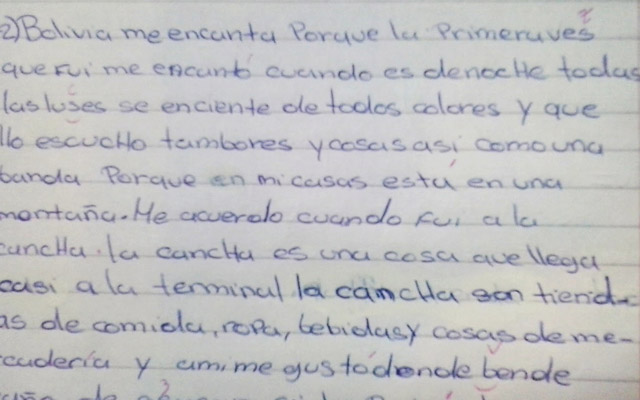 2) Bolivia me encanta Porque la Primeraves
que fui me encantó cuando es denoche todas
las luses se enciente de todos colores y que
llo escucho tambores y cosas asi como una
banda Porque en mi casas está en una
montaña. He acuerdo cuando fui a la
cancha. la cancha es una cosa que llega
casi a la terminal la cancha son tiend-
as de comida, ropa, bebidas y cosas de me-
cadería y ami me gusto donde bende